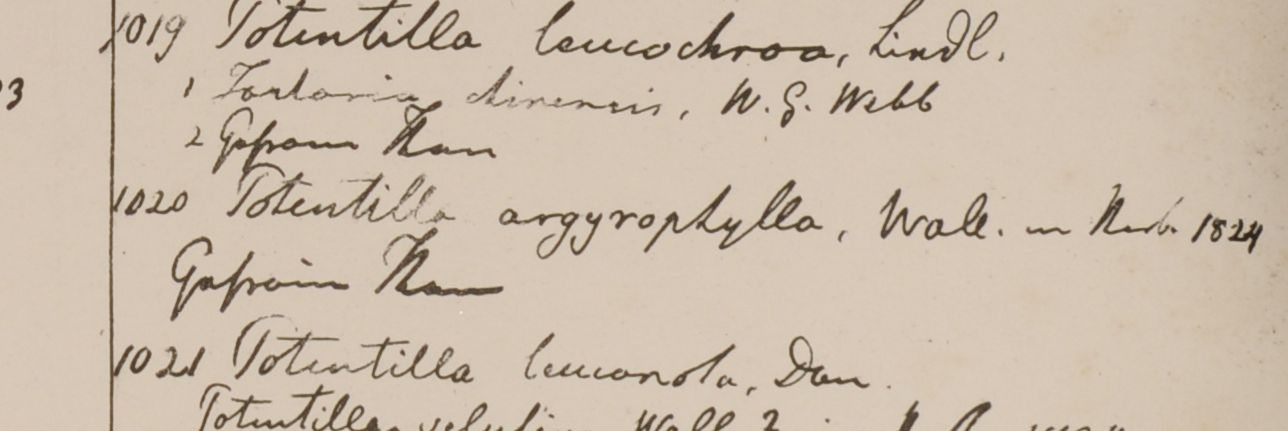 1019 Potentilla leucochroa, Lindl.
3
1 Tartaria chinensis, W. G. Webb
2 Gosain Than
1020 Potentilla argyrophylla, Wall. in Herb. 1824
Gosain Than
1021 Potentilla leuconota, Don.
Potentilla Wall